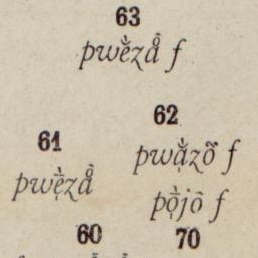 63
pwȅzå̀ f
62
61
pwạ̊̀zȭ f
pwẹ̏zå̀
pọ̏jõ f
60
70